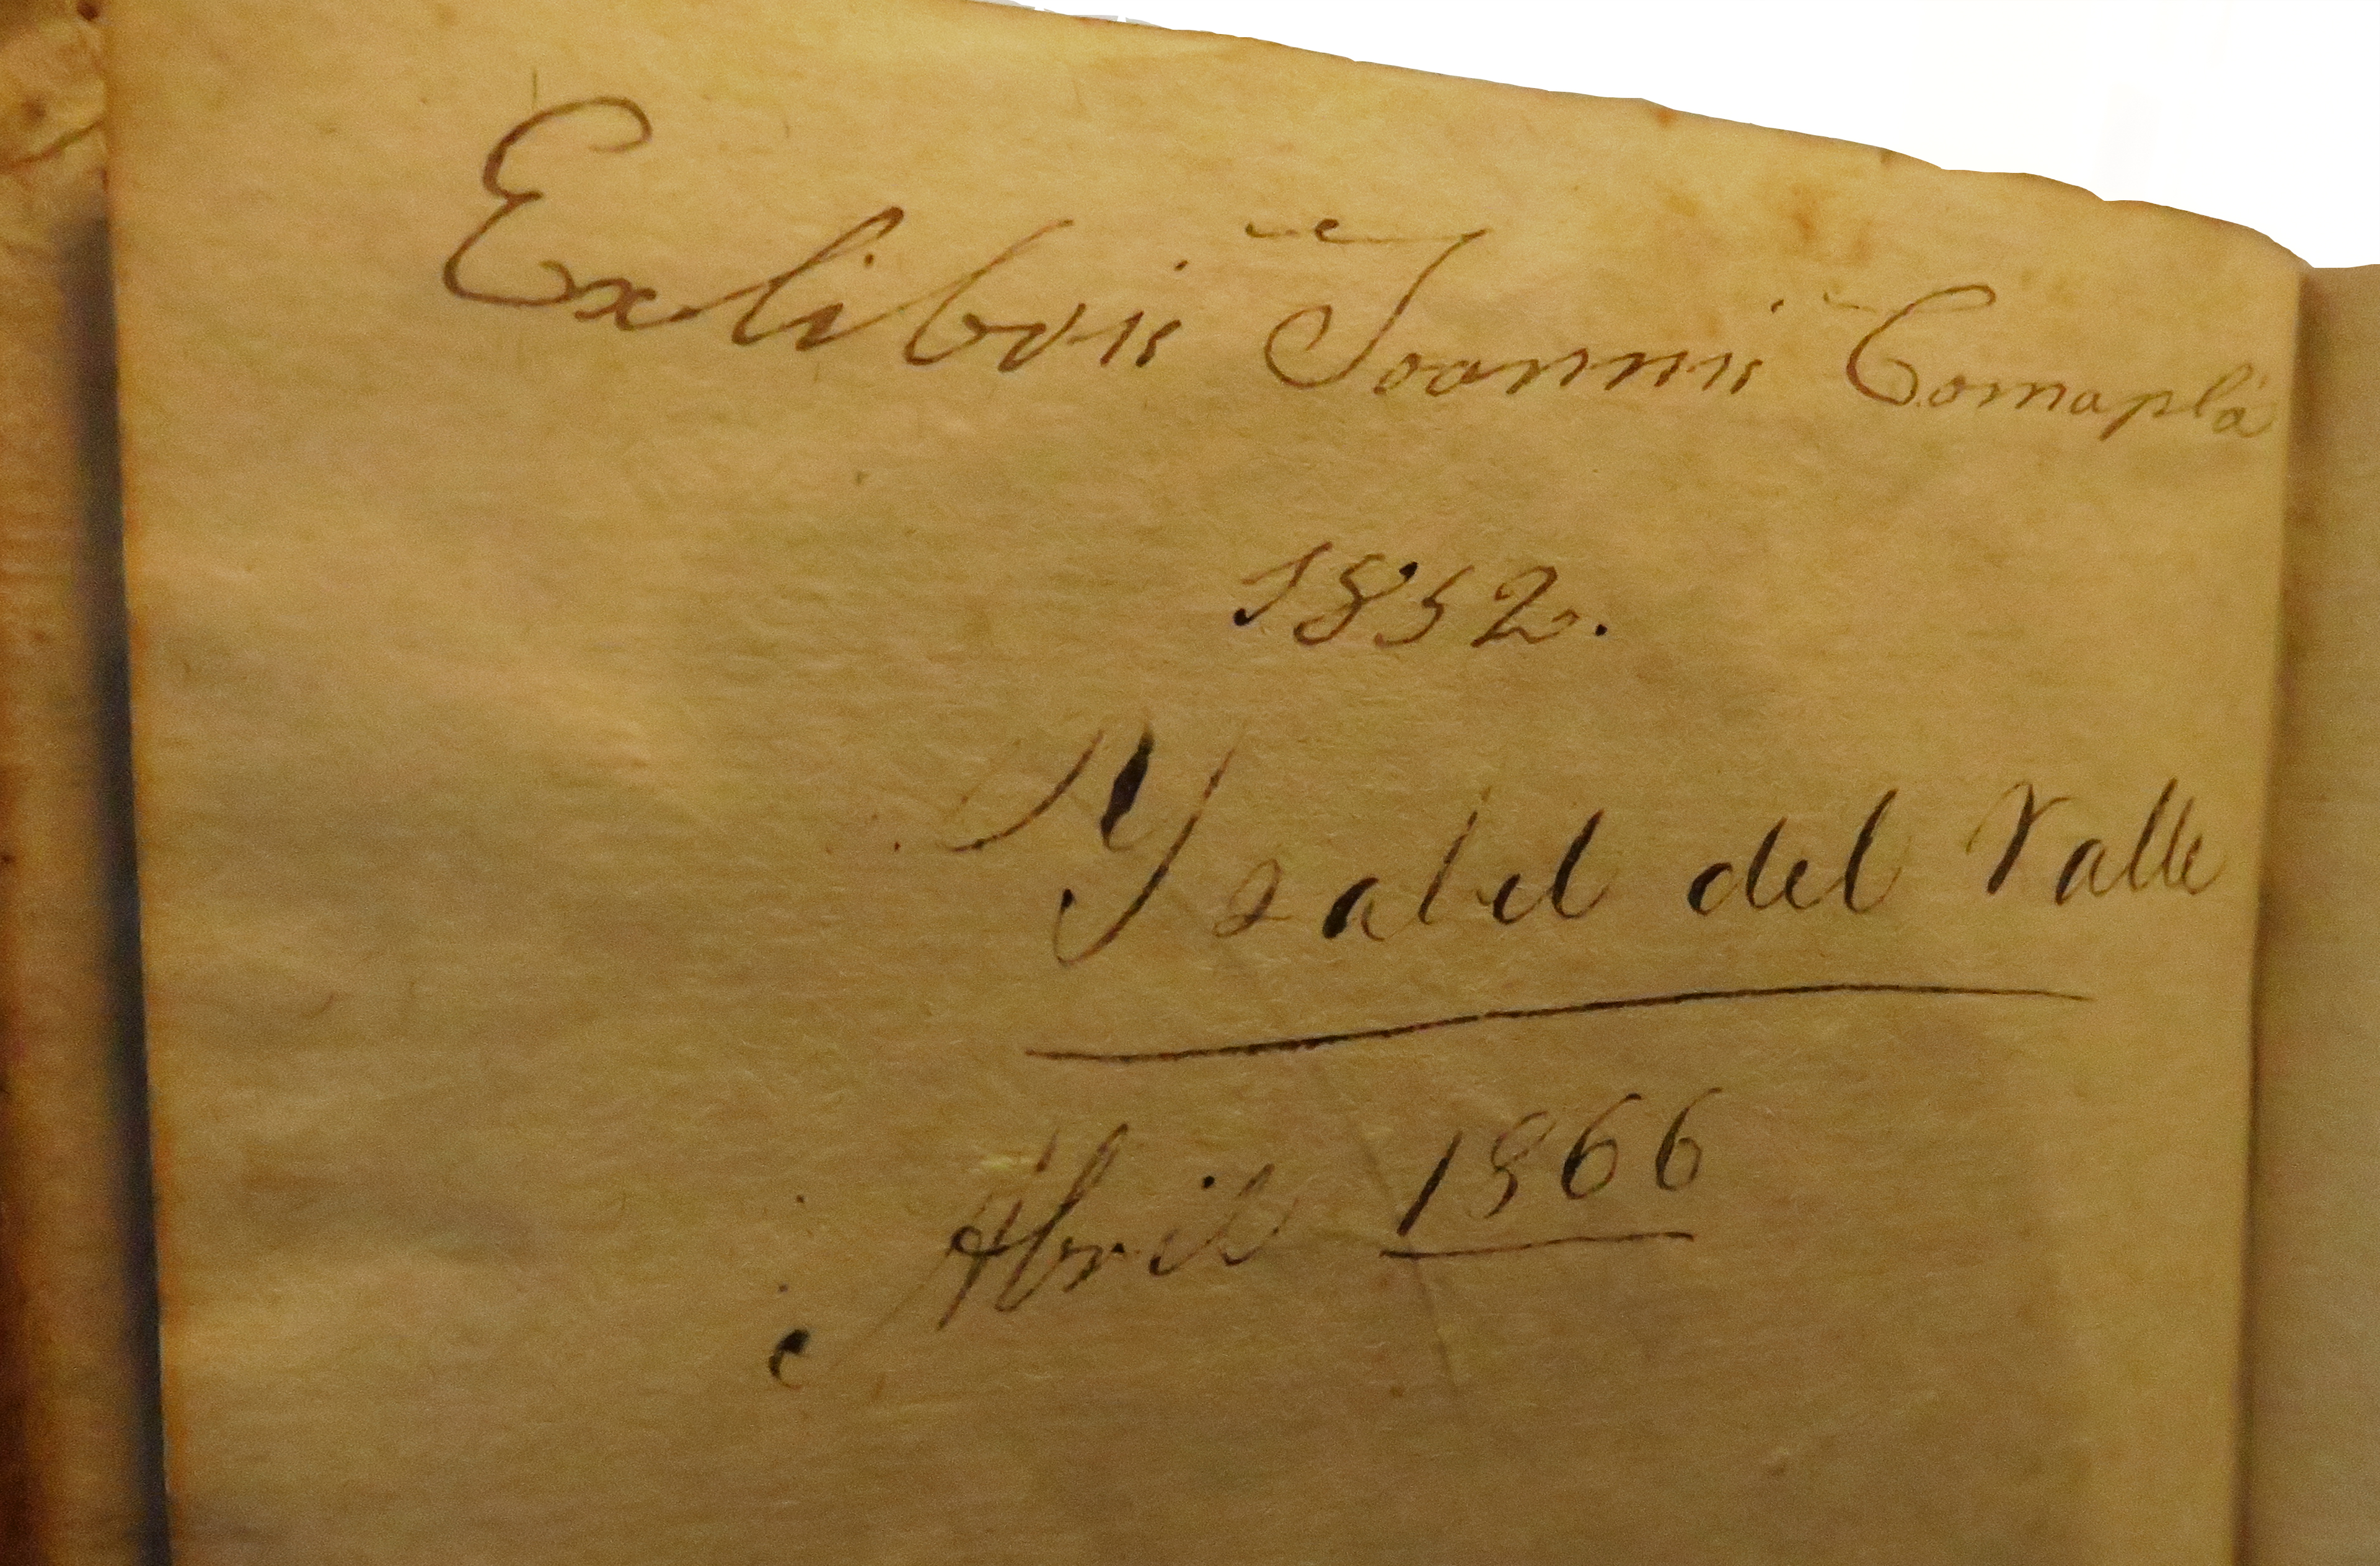 Exlibris Joannis Comaplá
1852.
Ysabel del Valle
Abril 1866